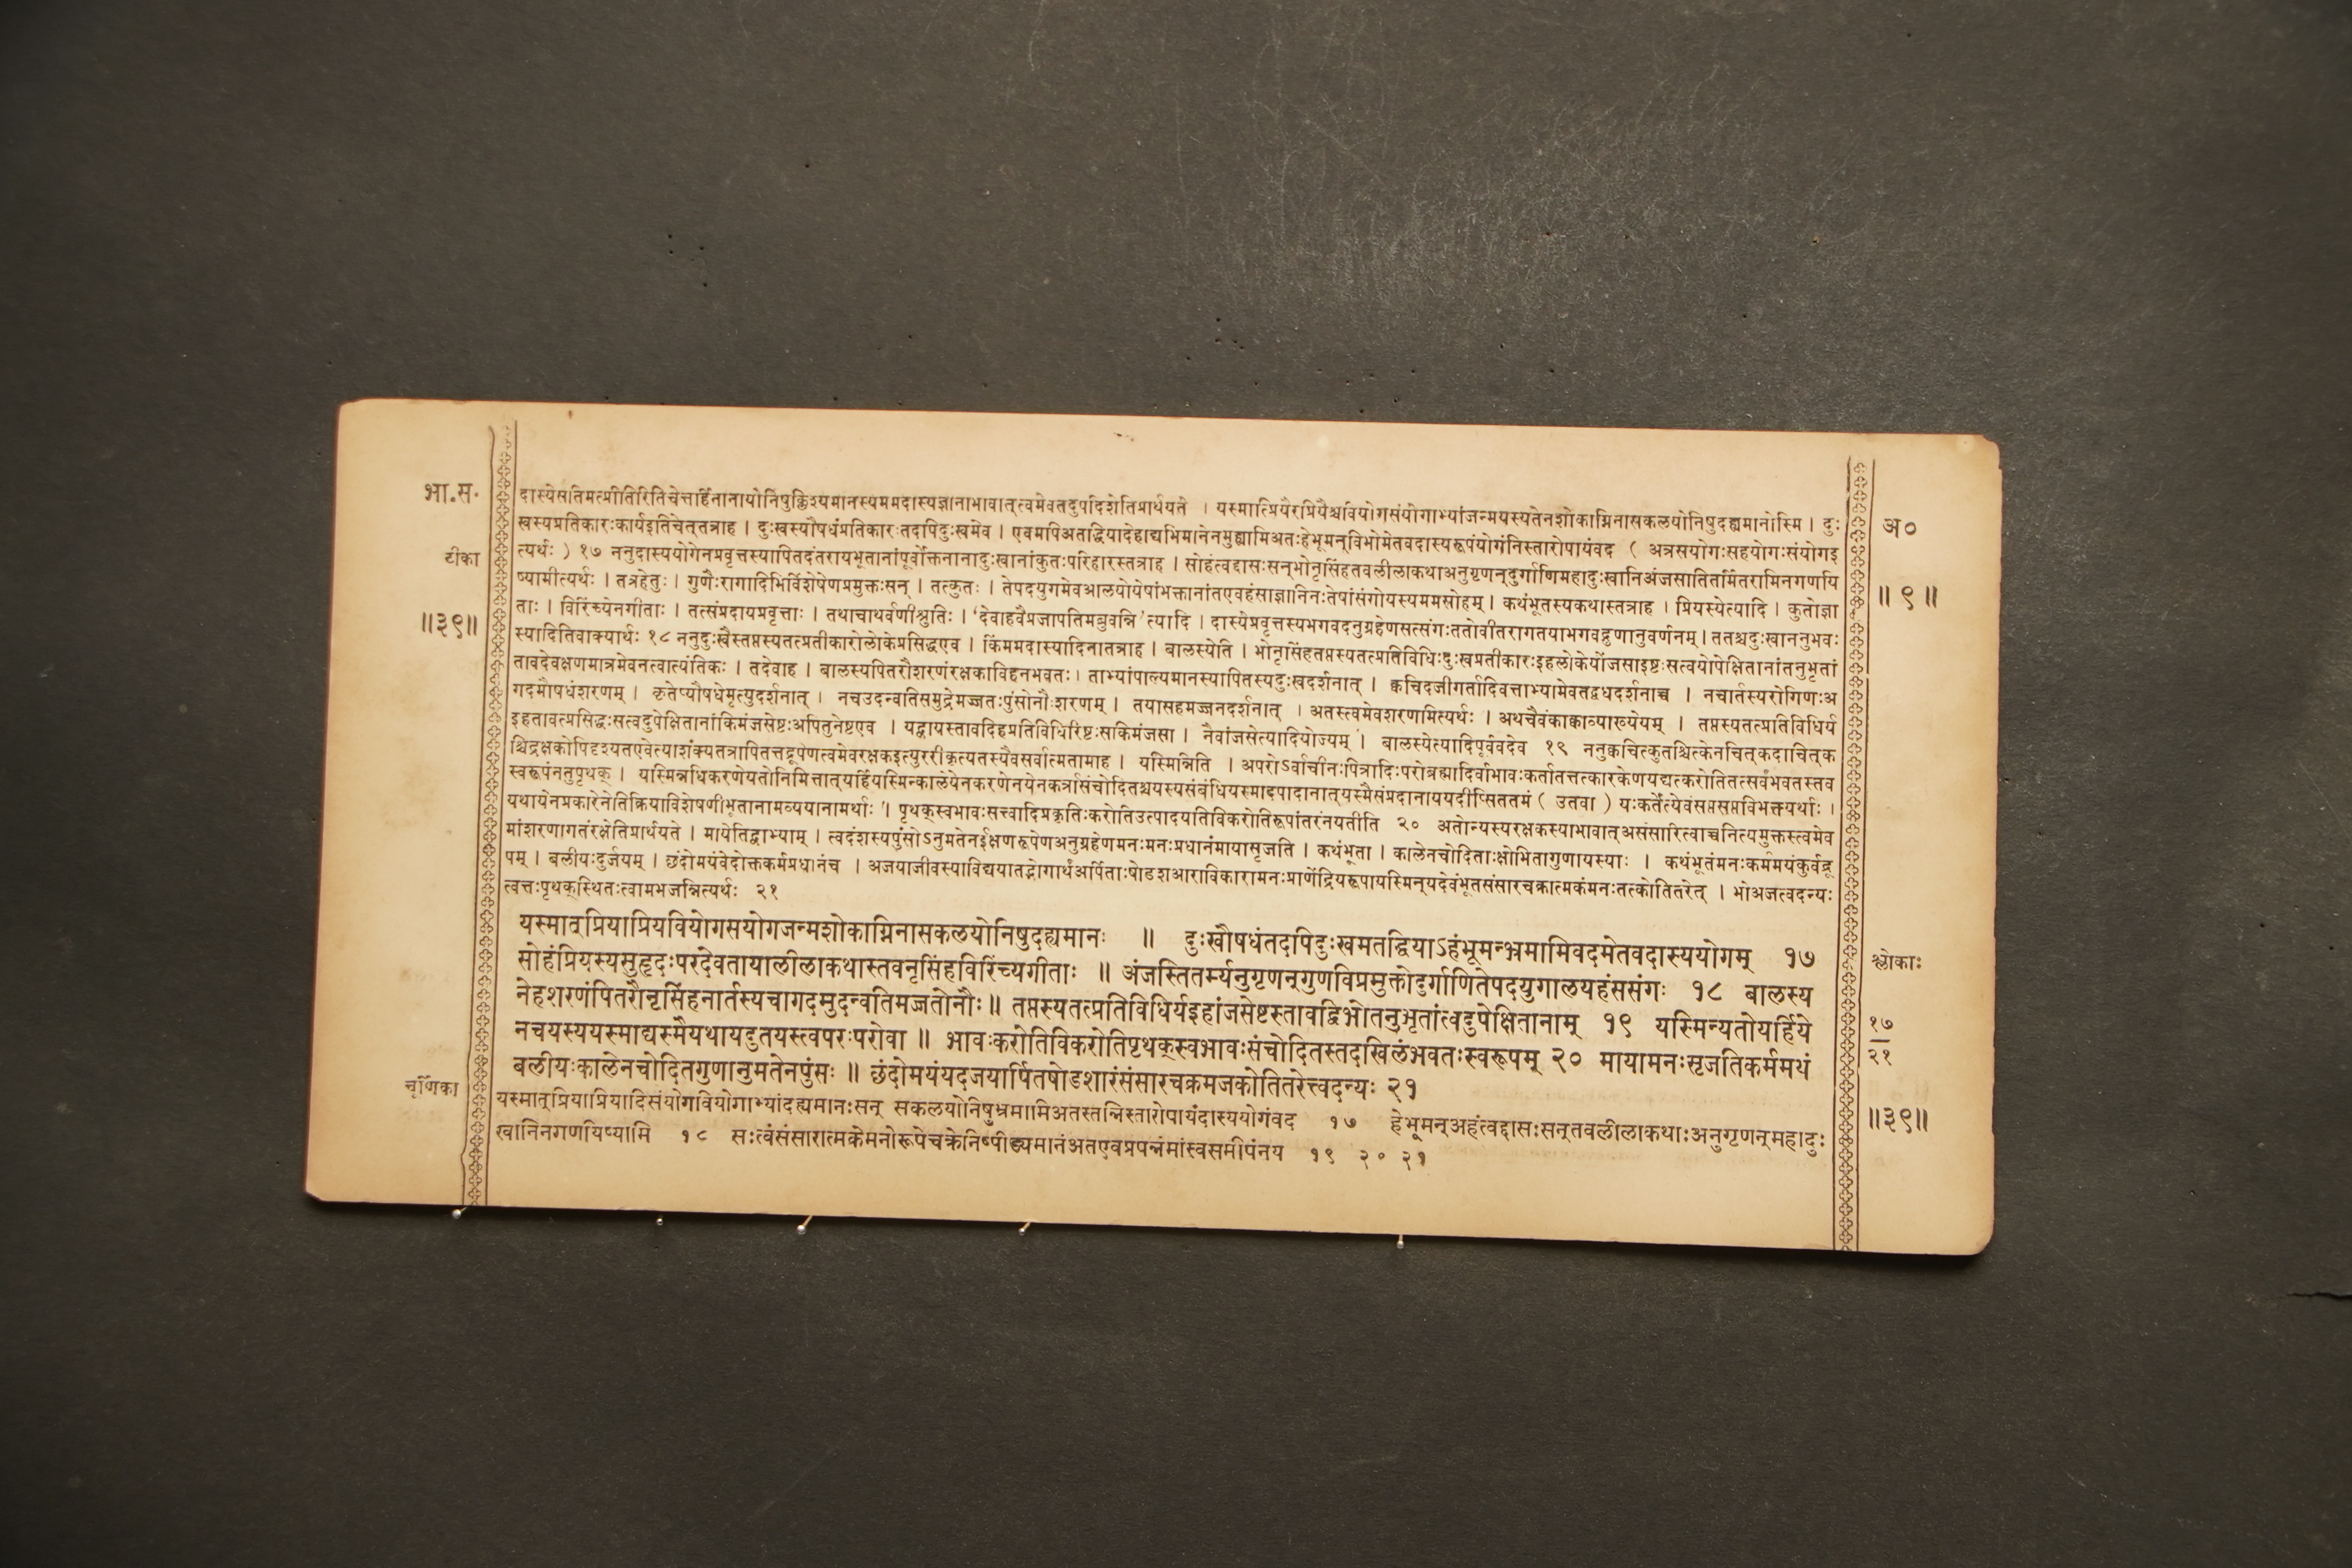 भा.स.
टीका
॥३९॥
दास्येसतिमत्प्रीतिरितिचेत्तर्हिनानायोनिषुक्लिश्यमानस्यममदास्यज्ञानाभावात्त्वमेवतदुपदिशेतिप्रार्थयते । यस्मात्प्रियैरप्रियैश्चवियोगसंयोगाभ्यांजन्मयस्यतेनशोकाग्निनासकलयोनिषुदह्यमानोस्मि । दुः
खस्यप्रतिकारःकार्यइतिचेत्तत्राह । दुःखस्यौषधंप्रतिकारःतदपिदुःखमेव । एवमपिअतद्धियादेहाद्यभिमानेनमुह्यामिअतःहेभूमन्विभोमेतवदास्यरूपंयोगंनिस्तारोपायंवद ( अत्रसयोगःसहयोगःसंयोगइ
त्यर्थः ) १७ ननुदास्ययोगेनप्रवृत्तस्यापितदंतरायभूतानांपूर्वोक्तनानादुःखानांकुतःपरिहारस्तत्राह । सोहंत्वद्दासःसन्भोनृसिंहतवलीलाकथाअनुगृणन्दुर्गाणिमहादुःखानिअंजसातितर्मितरामिनगणयि
ष्यामीत्यर्थः । तत्रहेतुः । गुणैःरागादिभिर्विशेषेणप्रमुक्तःसन् । तत्कुतः । तेपदयुगमेवआलयोयेषांभक्तानांतएवहंसाज्ञानिनःतेषांसंगोयस्यममसोहम् । कथंभूतस्यकथास्तत्राह । प्रियस्येत्यादि । कुतोज्ञा
ताः । विरिंच्येनगीताः । तत्संप्रदायप्रवृत्ताः । तथाचाथर्वणीश्रुतिः । ‘देवाहवैप्रजापतिमब्रुवन्नि’त्यादि । दास्येप्रवृत्तस्यभगवदनुग्रहेणसत्संगःततोवीतरागतयाभगवद्गुणानुवर्णनम् । ततश्चदुःखाननुभवः
स्यादितिवाक्यार्थः १८ ननुदुःखैस्तप्तस्यतत्प्रतीकारोलोकेप्रसिद्धएव । किंममदास्यादिनातत्राह । बालस्येति । भोनृसिंहतप्तस्यतत्प्रतिविधिःदुःखप्रतीकारःइहलोकेयोंजसाइष्टःसत्वयोपेक्षितानांतनुभृतां
तावदेवक्षणमात्रमेवनत्वात्यंतिकः । तदेवाह । बालस्यपितरौशरणंरक्षकाविहनभवतः । ताभ्यांपाल्यमानस्यापितस्यदुःखदर्शनात् । क्वचिदजीगर्तादिवत्ताभ्यामेवतद्वधदर्शनाच्च । नचार्तस्यरोगिणःअ
गदमौषधंशरणम् । कृतेप्यौषधेमृत्युदर्शनात् । नचउदन्वतिसमुद्रेमज्जतःपुंसोनौःशरणम् । तयासहमज्जनदर्शनात् । अतस्त्वमेवशरणमित्यर्थः । अथचैवंकाक्वाव्याख्येयम् । तप्तस्यतत्प्रतिविधिर्य
इहतावत्प्रसिद्धःसत्वदुपेक्षितानांकिमंजसेष्टःअपितुनेष्टएव । यद्वायस्तावदिहप्रतिविधिरिष्टःसकिमंजसा । नैवांजसेत्यादियोज्यम् । बालस्येत्यादिपूर्ववदेव १९ ननुक्वचित्कुतश्चित्केनचित्कदाचित्क
श्चिद्रक्षकोपिदृश्यतएवेत्याशंक्यतत्रापितत्तद्रूपेणत्वमेवरक्षकइत्युररीकृत्यतस्यैवसर्वात्मतामाह । यस्मिन्निति । अपरोऽर्वाचीनःपित्रादिःपरोब्रह्मादिर्वाभावःकर्तातत्तत्कारकेणयद्यत्करोतितत्सर्वंभवतस्तव
स्वरूपंनतुपृथक् । यस्मिन्नधिकरणेयतोनिमित्तात्यर्हियस्मिन्कालेयेनकरणेनयेनकर्त्रासंचोदितश्चयस्यसंबंधियस्मादपादानात्यस्मैसंप्रदानाययदीप्सिततमं ( उतवा ) यःकर्तेत्येवंसप्तसप्तविभक्त्यर्थाः ।
यथायेनप्रकारेनेतिक्रियाविशेषणीभूतानामव्ययानामर्थाः । पृथक्स्वभावःसत्त्वादिप्रकृतिःकरोतिउत्पादयतिविकरोतिरूपांतरंनयतीति २० अतोन्यस्यरक्षकस्याभावात्असंसारित्वाच्चनित्यमुक्तस्त्वमेव
मांशरणागतंरक्षेतिप्रार्थयते । मायेतिद्वाभ्याम् । त्वदंशस्यपुंसोऽनुमतेनईक्षणरूपेणअनुग्रहेणमनःमनःप्रधानंमायासृजति । कथंभूता । कालेनचोदिताःक्षोभितागुणायस्याः । कथंभूतंमनःकर्ममयंकुर्वद्रू
पम् । बलीयःदुर्जयम् । छंदोमयंवेदोक्तकर्मप्रधानंच । अजयाजीवस्याविद्ययातद्भोगार्थंअर्पिताःषोडशआराविकारामनःप्राणेंद्रियरूपायस्मिन्यदेवंभूतसंसारचक्रात्मकंमनःतत्कोतितरेत् । भोअजत्वदन्यः
त्वत्तःपृथक्स्थितःत्वामभजन्नित्यर्थः २१
यस्मात्प्रियाप्रियवियोगसयोगजन्मशोकाग्निनासकलयोनिषुदह्यमानः ॥ दुःखौषधंतदपिदुःखमतद्धियाऽहंभूमन्भ्रमामिवदमेतवदास्ययोगम् १७
सोहंप्रियस्यसुहृदःपरदेवतायालीलाकथास्तवनृसिंहविरिंच्यगीताः ॥ अंजस्तितर्म्यनुगृणन्गुणविप्रमुक्तोदुर्गाणितेपदयुगालयहंससंगः १८ बालस्य
नेहशरणंपितरौनृसिंहनार्तस्यचागदमुदन्वतिमज्जतोनौः॥ तप्तस्यतत्प्रतिविधिर्यइहांजसेष्टस्तावद्विभोतनुभृतांत्वदुपेक्षितानाम् १९ यस्मिन्यतोयर्हिये
नचयस्ययस्माद्यस्मैयथायदुतयस्त्वपरःपरोवा ॥ भावःकरोतिविकरोतिपृथक्स्वभावःसंचोदितस्तदखिलंभवतःस्वरूपम् २० मायामनःसृजतिकर्ममथं
बलीयःकालेनचोदितगुणानुमतेनपुंसः ॥ छंदोमयंयदजयार्पितषोडशारंसंसारचक्रमजकोतितरेत्त्वदन्यः २१
चूर्णिका
यस्मात्प्रियाप्रियादिसंयोगवियोगाभ्यांदह्यमानःसन् सकलयोनिषुभ्रमामिअतस्तन्निस्तारोपायंदास्ययोगंवद १७ हेभूमन्अहंत्वद्दासःसन्तवलीलाकथाःअनुगृणन्महादुः
खानिनगणयिष्यामि १८ सःत्वंसंसारात्मकेमनोरूपेचक्रेनिष्पीड्यमानंअतएवप्रपन्नंमांस्वसमीपंनय १९ २० २१
अ०
॥९॥
श्लोकाः
१७
२१
॥३९॥